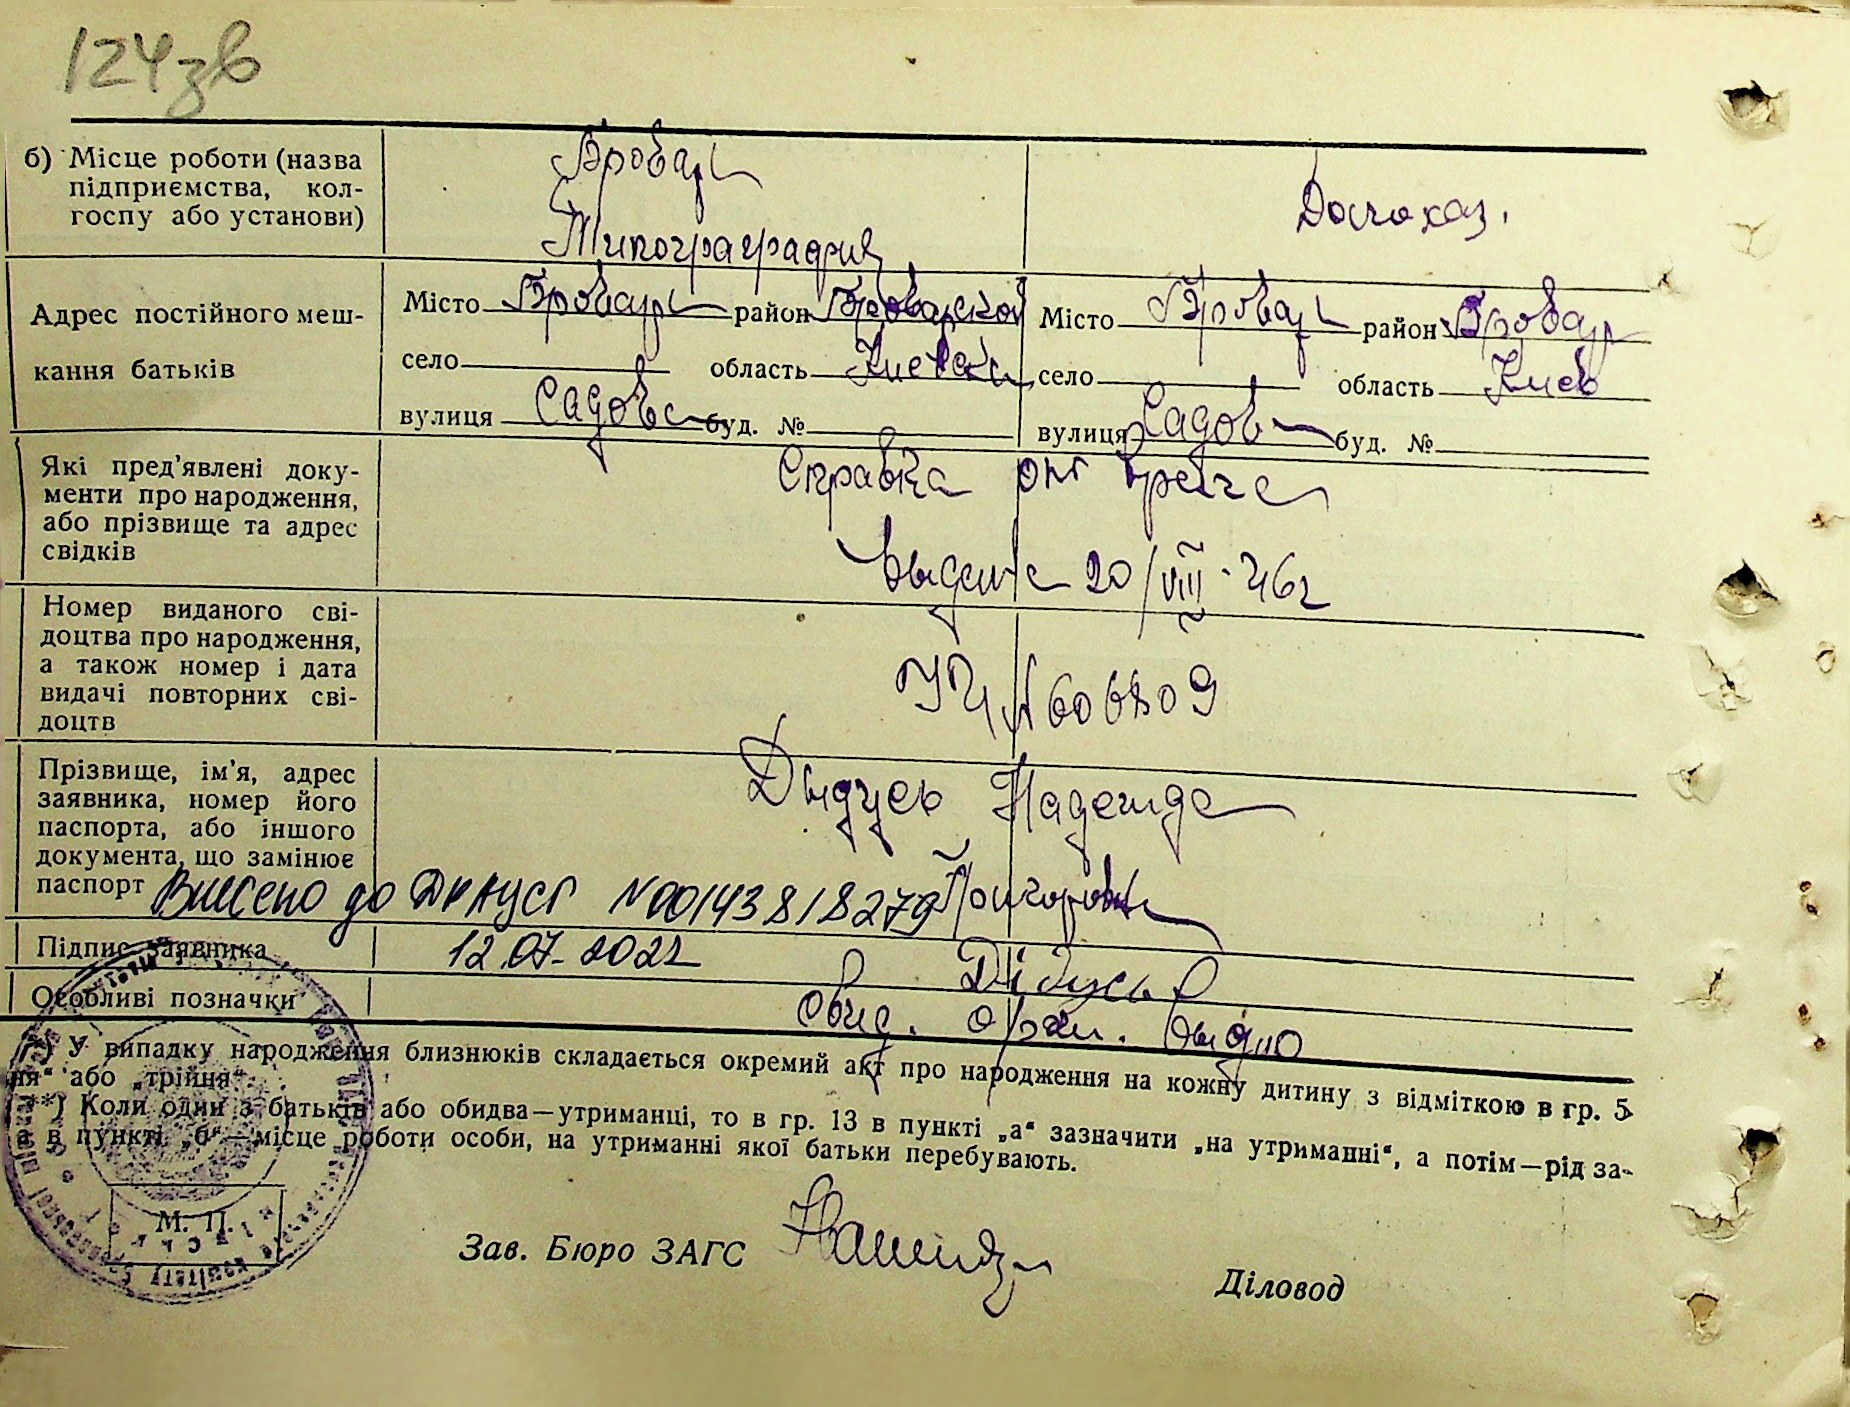 124зв
б) Місце роботи (назва
підприємства, кол-
госпу або установи)
Бровары
Типограграфия
Домохоз.
Адрес постійного меш-
кання батьків
Місто Бровары район Броварской
село область Киевска
вулиця Садова буд. №
Місто Бровары район Бровар
село область Киев
вулиця Садов буд. №
Які пред'явлені доку-
менти про народження,
або прізвище та адрес
свідків
Справка от врача
выдана 20/VIII-46г
Номер виданого сві-
доцтва про народження,
а також номер і дата
видачі повторних сві-
доцтв
УЧ N 606809
Прізвище, ім'я, адрес
заявника, номер його
паспорта, або іншого
документа, що замінює
паспорт
Дыдусь Надежда
Григоровна
Внесено до ДРАЦСГ N 00143818279
12.07.2022
Підпис заявника
Дідусь
Особливі позначки
свид. орган. выдно
*) У випадку народження близнюків складається окремий акт про народження на кожну дитину з відміткою в гр. 5
ня“ або „трійня“.
**) Коли один з батьків або обидва—утриманці, то в гр. 13 в пункті „а“ зазначити „на утриманні“, а потім—рід за-
а в пункті „б“—місце роботи особи, на утриманні якої батьки перебувають.
М. П.
Зав. Бюро ЗАГС
Діловод